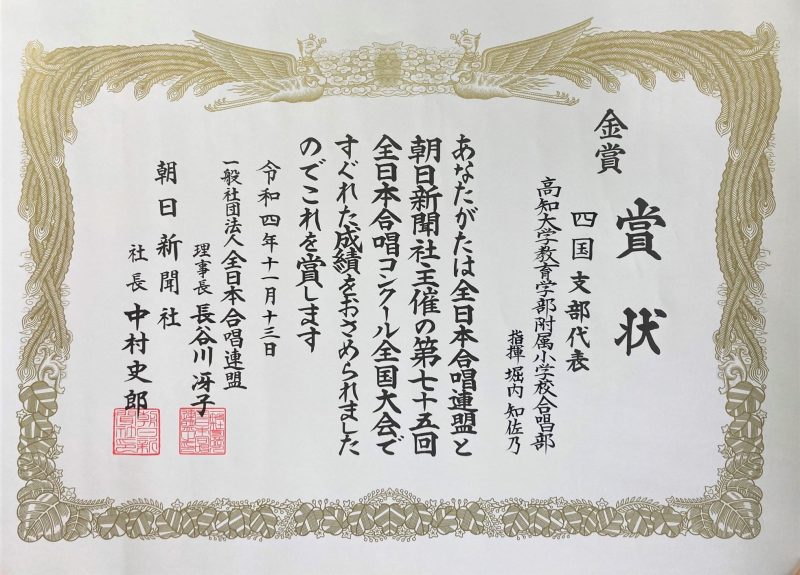 賞状
金賞
四国支部代表
高知大学教育学部附属小学校合唱部
指揮 堀内 知佐乃
あなたがたは全日本合唱連盟と
朝日新聞社主催の第七十五回
全日本合唱コンクール全国大会で
すぐれた成績をおさめられました
のでこれを賞します
令和四年十一月十三日
一般社団法人全日本合唱連盟
理事長 長谷川 冴子
朝日新聞社
社長 中村史郎